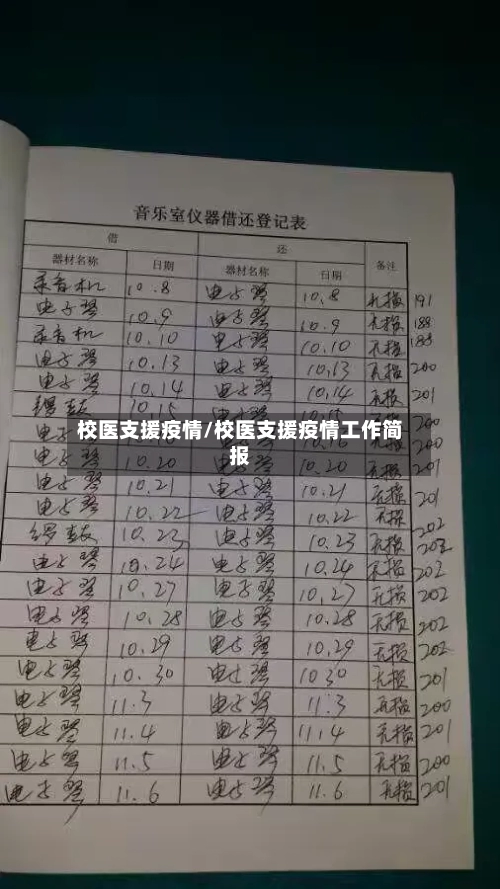 音乐室仪器借还登记表
借 还 备注
器材名称 日期 器材名称 日期
录音机 10.8 电子琴 10.8 无损 191
电子琴 10.9 电子琴 10.9 无损 188
录音机 10.10 电子琴 10.10 无损 188
电子琴 10.13 电子琴 10.13 无损 200
电子琴 10.14 电子琴 10.14 无损 201
锣鼓 10.15 200
校医支援疫情/校医支援疫情工作简
报
200
电子琴 10.20 电子琴 10.20 无损 201
电子琴 10.21 电子琴 10.21 无损 201
电子琴 10.22 电子琴 10.22 无损
锣鼓 10.23 电子琴 10.23 无损 202
电子琴 10.24 电子琴 10.24 无损 202
电子琴 10.27 电子琴 10.27 无损 202
电子琴 10.28 电子琴 10.28 无损 202
电子琴 10.29 电子琴 10.29 无损 202
电子琴 10.30 电子琴 10 30 无损 201
电子琴 11.3 电子琴 11.3 无损 200
电子琴 11.4 电子琴 11.4 无损 201
电子琴 11.5 电子琴 11.5 无损 200
电子琴 11.6 电子琴 11.6 无损 201